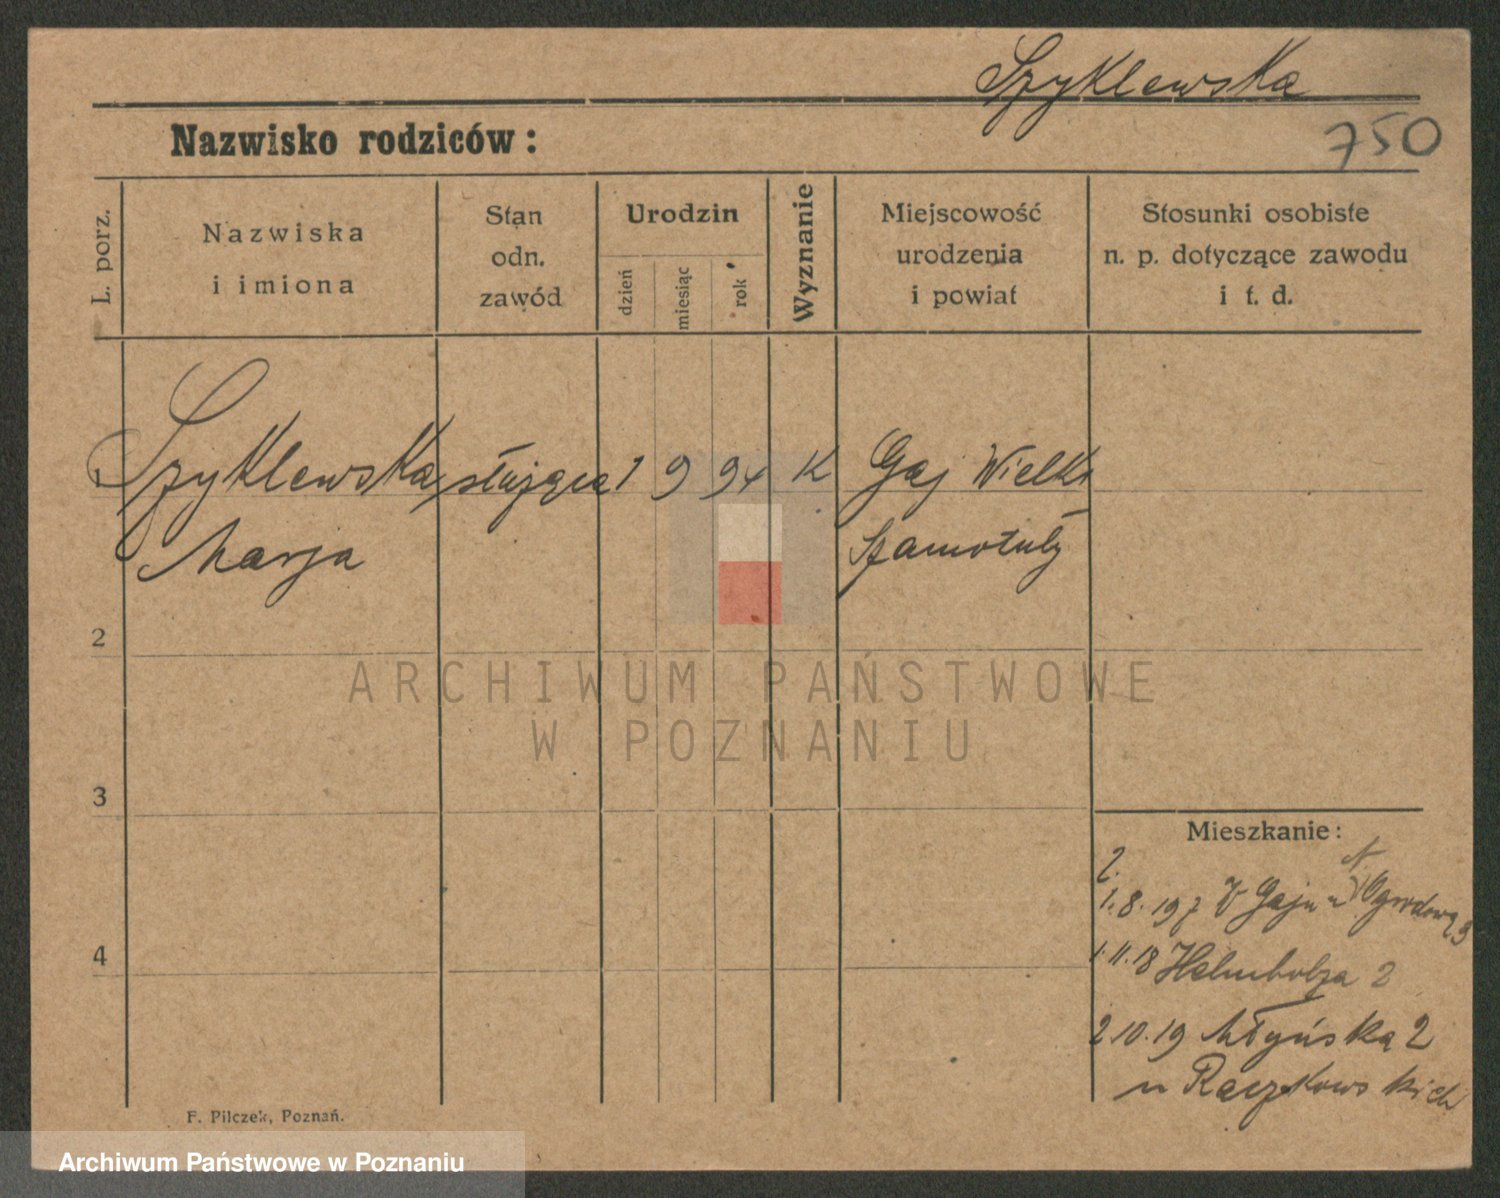 Szyklewska
750
Nazwisko rodziców :
L. porz.
Nazwiska
i imiona
Stan
odn.
zawód
Urodzin
dzień
miesiąc
rok
Wyznanie
Miejscowość
urodzenia
i powiat
Stosunki osobiste
n. p. dotyczące zawodu
i t. d.
1 Szyklewska służąca 1 9 94 K Gaj Wielki
Marja Szamotuły
2
ARCHIWUM PAŃSTWOWE
W POZNANIU
3
Mieszkanie :
1.8.197 V Gaju u Ogrodowa 3
4
1.11.18 Helmholza 2
2.10.19 Młyńska 2
u Raczkowskich
F. Pilczek, Poznań.
Archiwum Państwowe w Poznaniu